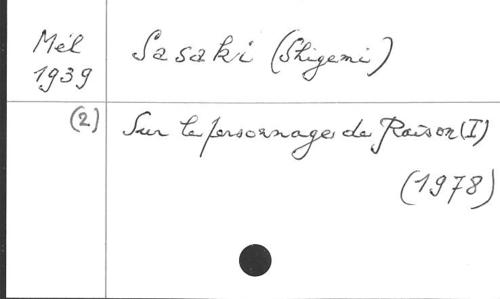 Mél Sasaki (Shigemi)
1939
(2) Sur le personnage de Raison (I)
(1978)